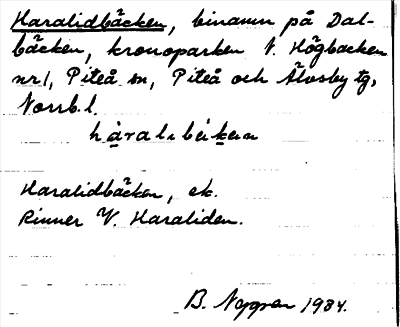 Haralidbäcken, binamn på Dal-
bäcken, kronoparken V. Högbacken
nr 1, Piteå sn, Piteå och Älvsby tg,
Norrb. l.
Haralidbäcken, ek.
Rinner V. Haraliden.
B. Nygren 1984.